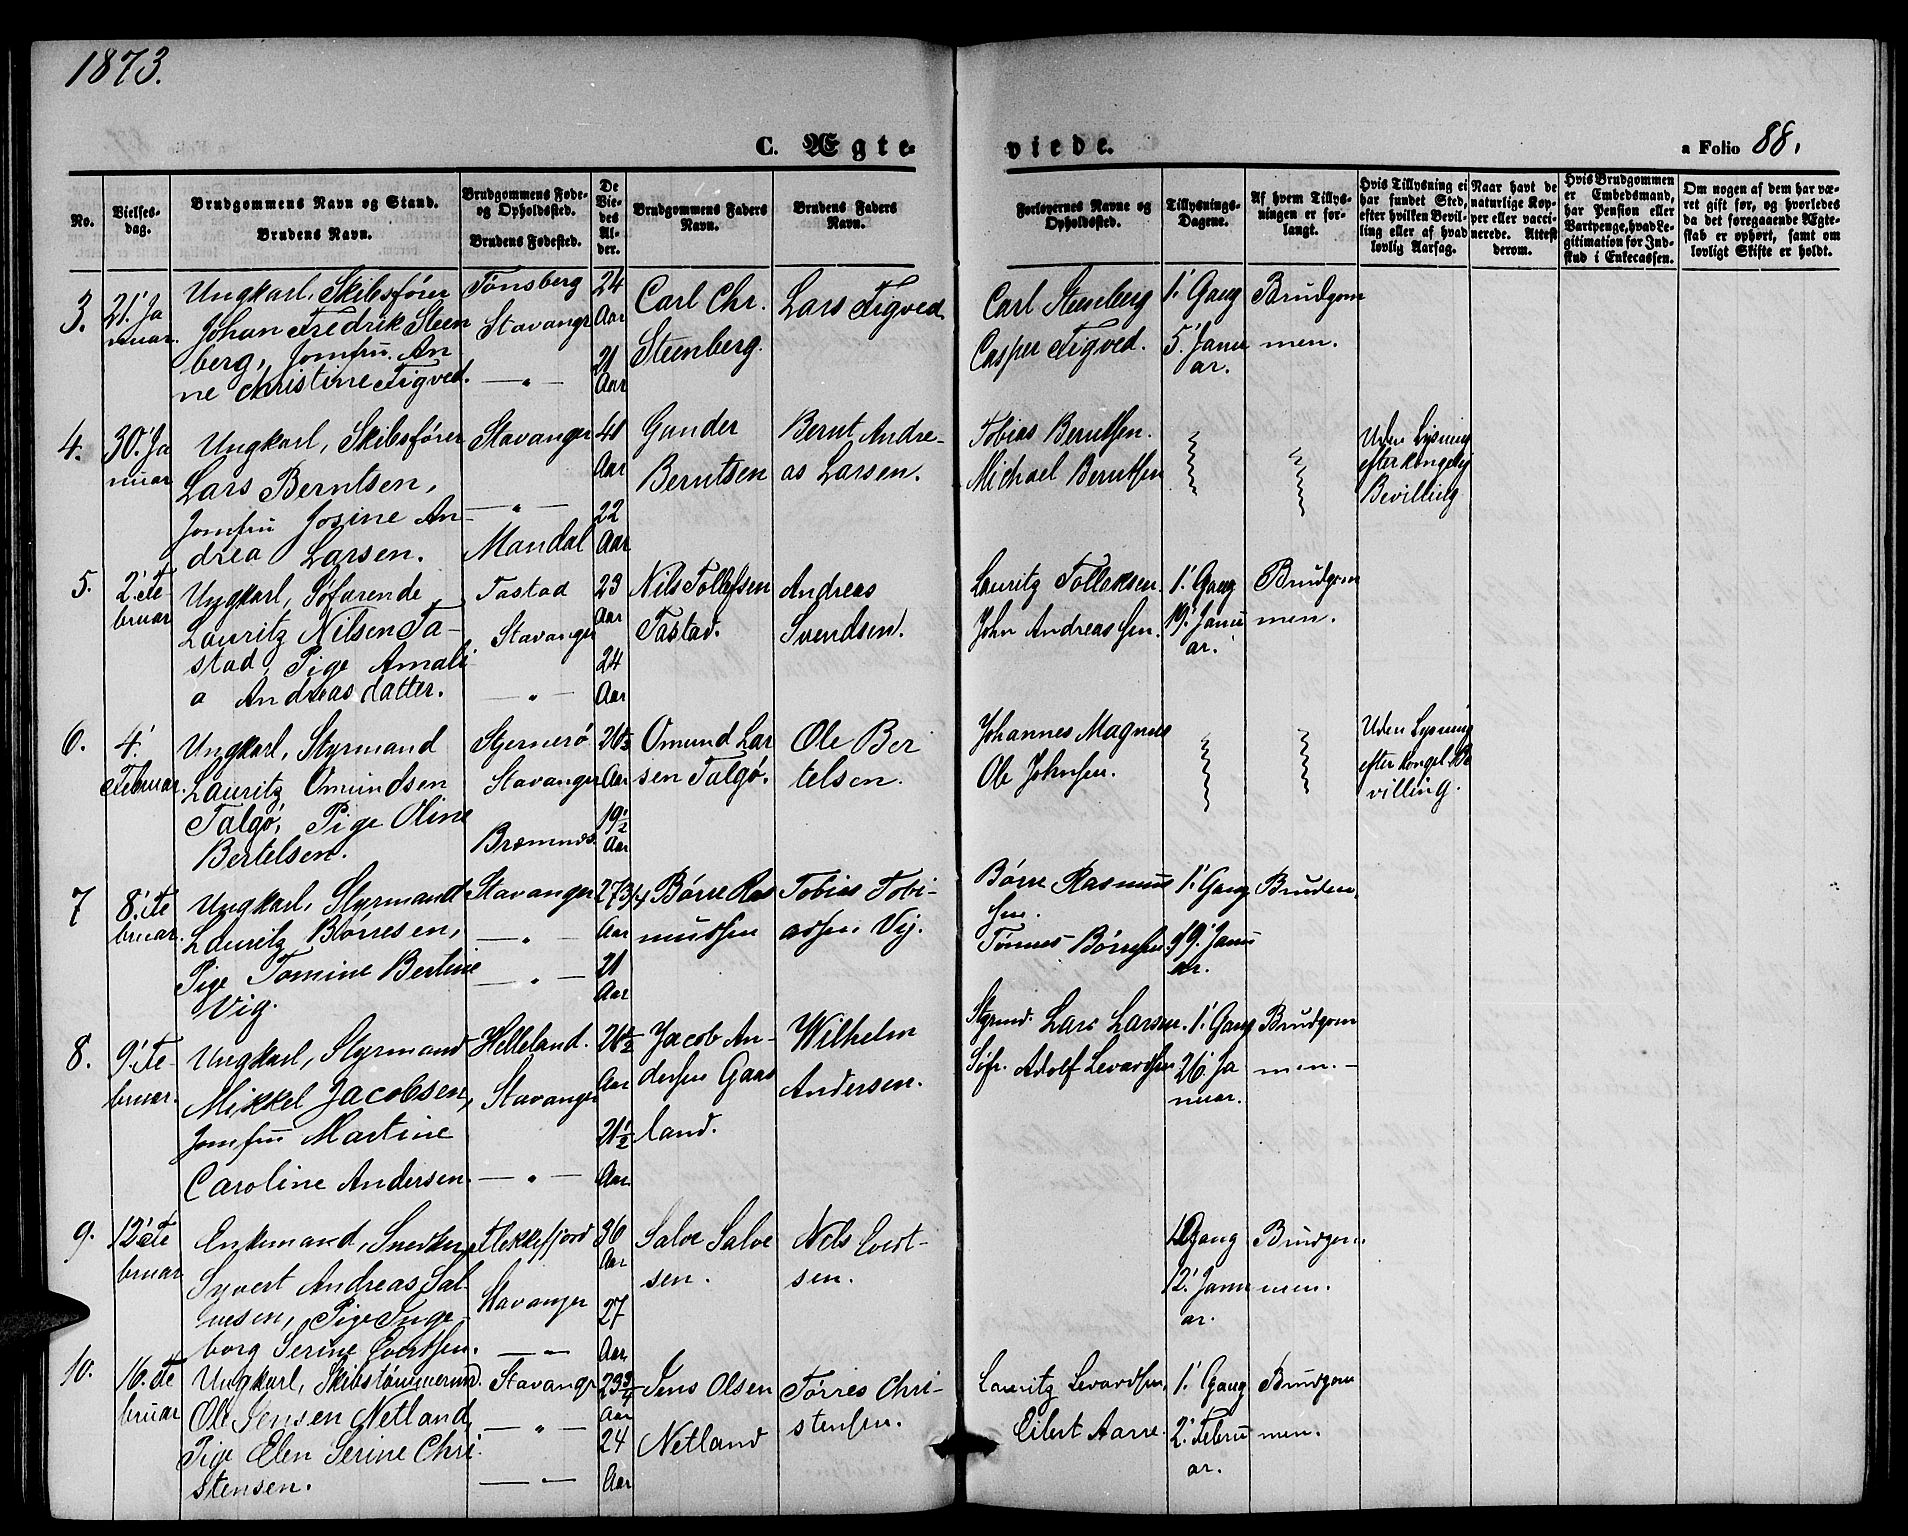 1873.
C. Ægte-
viede.
a Folio 88.
No.
Vielses-
dag.
Brudgommens Navn og Stand.
Brudens Navn.
Brudgommens Føde-
og Opholdssted.
Brudens Fødested.
De
Vie-
des
Al-
der.
Brudgommens Faders
Navn.
Brudens Faders
Navn.
Forlovernes Navne og
Opholdssted.
Tillysnings-
Dagene.
Af hvem Tillys-
ningen er for-
langt.
Hvis Tillysning ei
har fundet Sted,
efter hvilken Bevil-
ling eller af hvad
lovlig Aarsag.
Naar havt de
naturlige Kop-
per eller vacci-
nerede. Attest
derom.
Hvis Brudgommen
er Embedsmand,
har Pension eller
Vartpenge, hvad Le-
gitimation for Ind-
skud i Enkecassen.
Om nogen af dem har væ-
ret gift før, og hvorledes
da det foregaaende Ægte-
skab er ophørt, samt om
lovligt Skifte er holdt.
3.
21' Ja
nuar.
Ungkarl, Skibsfører
Johan Fredrik Steen
berg, Jomfru An
ne Christine Tigved.
Tønsberg
Stavanger
— " —
24
Aar
21
Aar
Carl Chr.
Steenberg.
Lars Tigved
Carl Steenberg
Casper Tigved.
1' Gang
5' Janu
ar.
Brudgom
men.
4.
30' Ja
nuar
Ungkarl, Skibsfører
Lars Berntsen,
Jomfru Josine An-
drea Larsen.
Stavanger
— " —
Mandal
41
Aar
22
Aar
Gunder
Berntsen
Bernt Andre-
as Larsen.
Tobias Berntsen.
Michael Berntsen
Uden Lysning
efter kongelig
Bevilling
5.
2' Fe
bruar
Ungkarl, Søfarende
Lauritz Nilsen Ta-
stad, Pige Amali
a Andreasdatter.
Tastad
Stavanger
— " —
23
Aar
24
Aar
Nils Tollefsen
Tastad.
Andreas
Svendsen.
Lauritz Tollaksen.
John Andreassen.
1' Gang
19' Janu
ar.
Brudgom
men.
6.
4'
Februar.
Ungkarl, Styrmand
Lauritz Omundsen
Talgø, Pige Oline
Bertelsen.
Stjernerø
Stavanger
Bremnes.
26½
Aar
19½
Aar
Omund Lar
sen Talgø.
Ole Ber
telsen.
Johannes Magnus
Ole Johnsen.
Uden Lysning
efter kongel. Be
villing.
7
8' Fe
bruar.
Ungkarl, Styrmand
Lauritz Børresen,
Pige Tomine Bertine
Vig.
Stavanger
— " —
— " —
27 3/4
Aar
21
Aar
Børre Ras
mussen
Tobias Tobi-
assen Vig.
Børre Rasmus
sen.
Tønnes Børresen
1' Gang
19' Janu
ar.
Bruden.
8.
9' Fe-
bruar.
Ungkarl, Styrmand
Mikkel Jacobsen,
Jomfru Martine
Caroline Andersen.
Helleland.
Stavanger
— " —
26½
Aar
21½
Aar
Jacob An-
dersen Gaas
land.
Wilhelm
Andersen.
Styrmd. Lars Larsen.
Søfr. Adolf Levardsen
1' Gang
26' Ja
nuar.
Brudgom
men. —
9.
12' Fe
bruar
Enkemand, Snedker
Syvert Andreas Sal-
vesen, Pige Inge-
borg Serine Evertsen.
Flekkefjord
Stavanger
— " —
36
Aar
27
Aar
Salve Salve
sen.
Nils Evert-
sen.
1' Gang
12' Janu
ar.
Brudgom
men.
10.
16. Fe
bruar
Ungkarl, Skibstømmermd.
Ole Jensen Netland,
Pige Elen Serine Chri
stensen.
Stavanger
— " —
— " —
23¾
Aar
24
Aar
Jens Olsen
Netland
Tørres Chri-
stensen.
Lauritz Levardsen,
Eilert Aarre.
1' Gang
2' Febru
ar.
Brudgom
men.